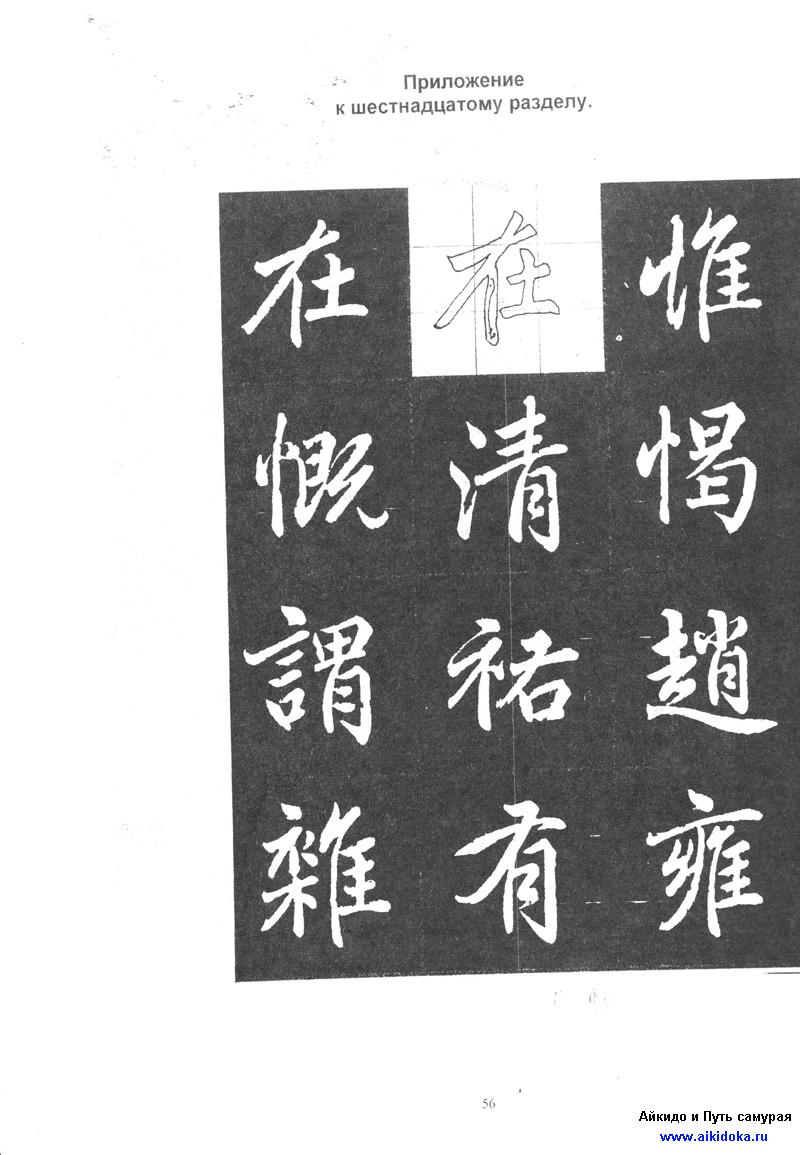 Приложение
к шестнадцатому разделу.
在 在 惟
慨 清 愒
謂 祐 趙
雜 有 雍
56
Айкидо и Путь самурая
www.aikidoka.ru